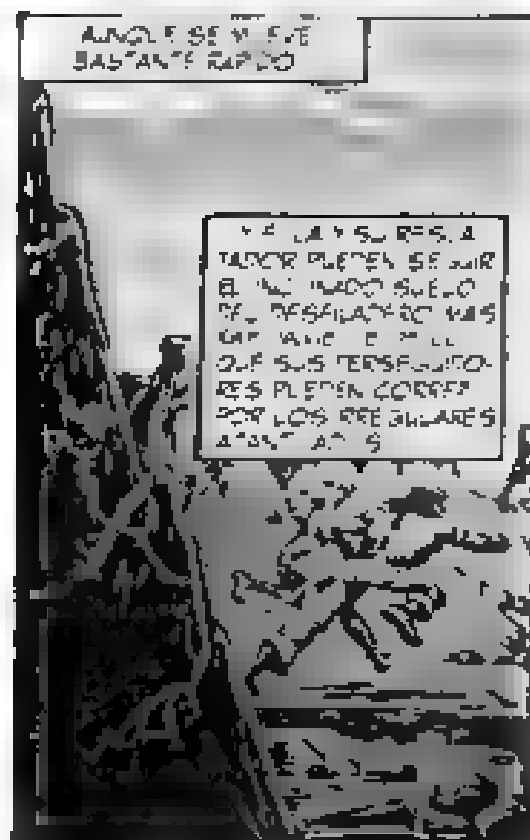 AUNQUE SE MUEVE
BASTANTE RAPIDO
Y SU RESCA-
TADOR PUEDEN SEGUIR
EL INCLINADO SUELO
DEL DESFILADERO MAS
QUE SUS PERSEGUIDO-
RES PUEDEN CORRER
POR LOS IRREGULARES